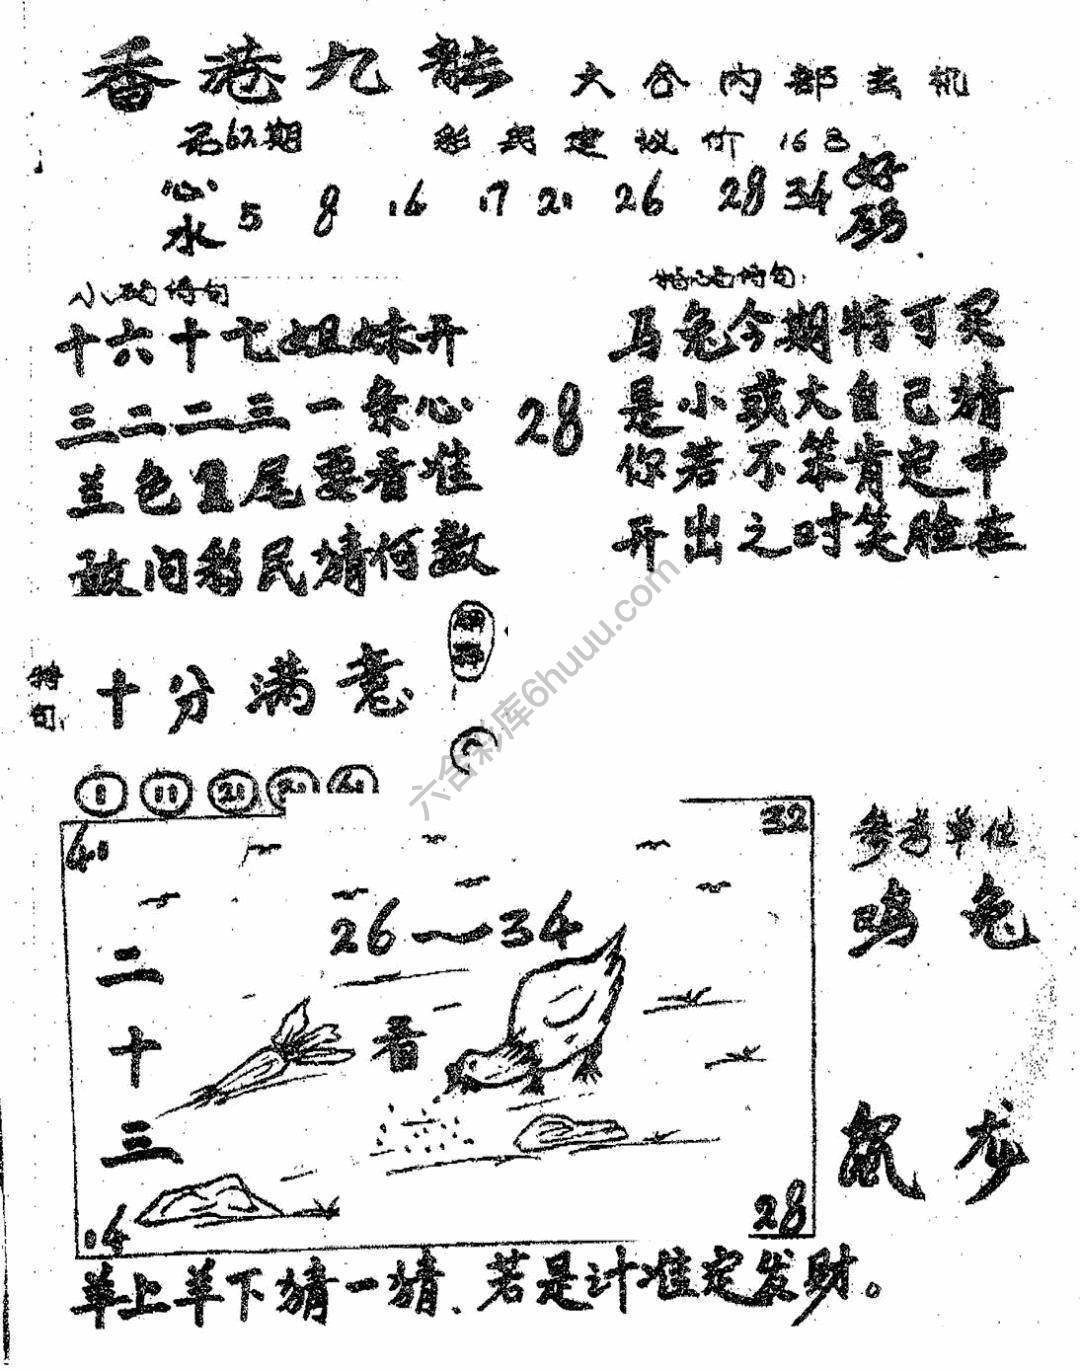 香港九龙 六合内部玄机
第62期 彩民建议价16
心水 5 8 16 17 21 26 28 34 好码
小码诗句
特码诗句
十六十七姐妹开
三二二三一条心
28
兰色里尾要看准
敢问彩民猜何数
马兔今期特可买
是小或大自己猜
你若不笨肯定中
开出之时笑脸在
特句
十分满意
1 11 21
41 32
26～34
二十三
看
14 28
参考单位
鸡 兔
鼠 龙
羊上羊下猜一猜、若是计准定发财。
六合彩库6huuu.com